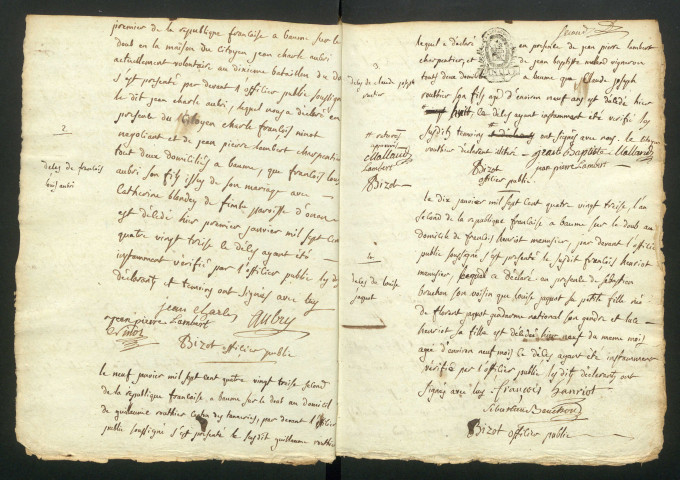 premier de la republique francoise a baume sur le
doub en la maison du citoyen jean charle aubri
actuellement volontaire au dixieme bataillon du do
s'est présenté par devant l'officier public soussigné
le dit jean charle aubri, lequel nous a déclaré en
presence du Citoyen charle francois
negotiant et de jean pierre lambert charpentier
tout deux domiciliés a baume, que francois louis
aubri son fils issu de son mariage avec
Catherine paroisse
est décédé hier premier janvier mil sept cent
quatre vingt treise le décès ayant été
instamment vérifié par l'officier public les d
déclarants et temoins ont signés avec luy
jean charle Aubry
jean pierre Lambert
Bizot officier public
2
décès de francois
louis aubri
le neuf janvier mil sept cent quatre vingt treise second
de la republique francoise a baume sur le doub au domicil
de guillaume routhier par devant l'officier
public soussigné s'est présenté le susdit guillaume routhier
3
décès de claude joseph
routier
lequel a déclaré en presence de jean pierre lambert
charpentier et de jean baptiste vigneron
touts deux domiciliés a baume que Claude joseph
routhier son fils agé d'environ neuf ans est décédé hier
huit, ce décès ayant été instamment vérifié les
susdits temoins ont signés avec nous le citoyen
routhier déclarant illitéré
jean Baptiste Mallard
jean pierre Lambert
Bizot
officier public
Mallard
Lambert
Bizot
4
décès de louise
jaquot
Le dix janvier mil sept cent quatre vingt treise, l'an
second de la republique francoise a baume sur le doub au
domicile de francois henriot menusier, par devant l'officier
public soussigné s'est présenté le susdit francois henriot
menusier, lequel a déclaré en presence de sebastien
bouchon son voisin que louise jaquot sa petite fille née
de jaquot gendarme national son gendre et de
henriot sa fille est décédée hier neuf du meme mois
agée d'environ neuf mois ce décès ayant été instamment
vérifié par l'officier public les dits déclarants ont
signés avec luy François hanriot
Sebastien Bouchon
Bizot officier public